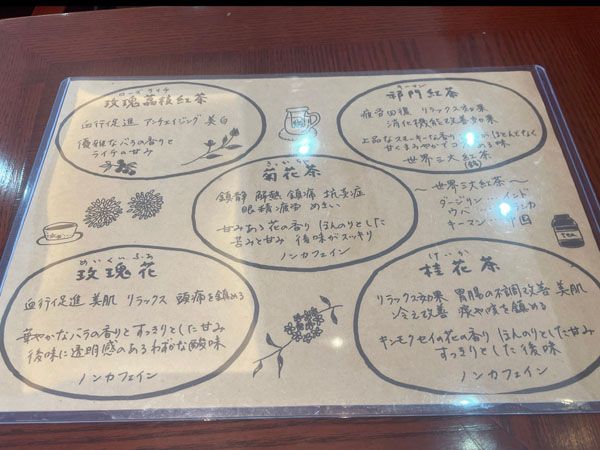 ローズ ライチ
玫瑰茘枝紅茶
血行促進 アンチエイジング 美白
優雅なバラの香りと
ライチの甘み
キーマン
祁門紅茶
疲労回復 リラックス効果
消化機能改善効果
上品なスモーキーな香り ほとんどなく
甘くまろやかでコクのある味
世界三大紅茶
きっかちゃ
菊花茶
鎮静 解熱 鎮痛 抗炎症
眼精疲労 めまい
甘みある花の香り ほんのりとした
苦みと甘み 後味がスッキリ
ノンカフェイン
〜世界三大紅茶〜
ダージリン インド
ウバ
キーマン 中国
TEA
めいくいふぁ
玫瑰花
血行促進 美肌 リラックス 頭痛を鎮める
華やかなバラの香りとすっきりとした甘み
後味に透明感のあるわずかな酸味
ノンカフェイン
けいか
桂花茶
リラックス効果 胃腸の不調改善 美肌
冷え改善 痰や咳を鎮める
キンモクセイの花の香り ほんのりとした甘み
すっきりとした後味
ノンカフェイン